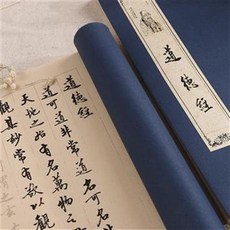 道德經
道德經
道可道非常道名可
天地之始有名萬物之
觀其妙常有欲以觀